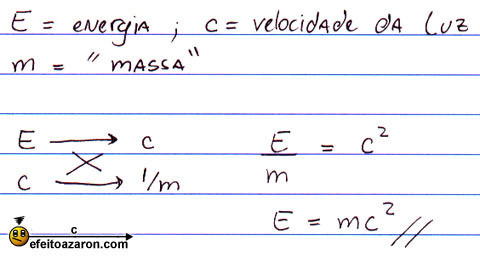 E = energia ; c = velocidade da luz
m = "massa"
E → c
c → 1/m
E/m = c²
E = mc² //
c
efeitoazaron.com